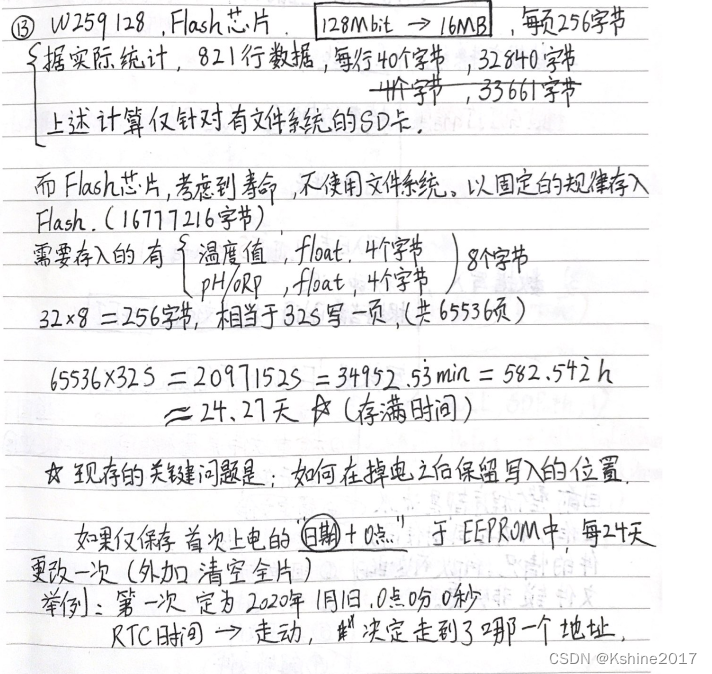 ⑬ W259128，Flash芯片. 128Mbit → 16MB，每页256字节
据实际统计，821行数据，每行40个字节，32840字节
4个字节，33661字节
上述计算仅针对有文件系统的SD卡.
而Flash芯片,考虑到寿命,不使用文件系统。以固定的规律存入
Flash.（16777216字节）
需要存入的有 温度值，float 4个字节
pH/ORp，float，4个字节 8个字节
32×8=256字节，相当于32S写一页,（共65536页）
65536×32S = 2097152S = 34952.53min = 582.542h
≈24.27天 ☆（存满时间）
☆ 现存的关键问题是：如何在掉电之后保留写入的位置.
如果仅保存首次上电的"日期+0点.." 于EEPROM中，每24天
更改一次（外加清空全片）
举例：第一次定为2020年1月1日.0点0分0秒
RTC时间 → 走动，决定走到了哪一个地址.
CSDN @Kshine2017